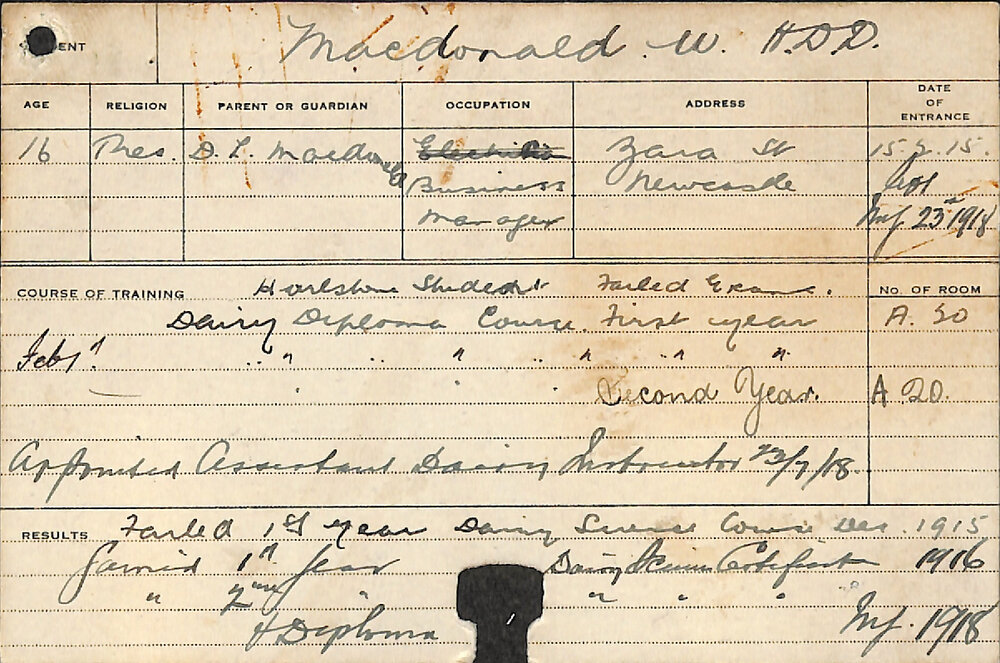 ENT Macdonald W. H.D.D.
AGE RELIGION PARENT OR GUARDIAN OCCUPATION ADDRESS DATE OF ENTRANCE
16 Pres. D. L. Macdonald Electrician Zara St 15.2.15.
Business Newcastle
Manager 23rd 1918
COURSE OF TRAINING Student Failed Exams. No. OF ROOM
Dairy Diploma Course. First year A. 20
Feby " " " " "
Second Year. A 20.
Appointed Assistant Dairy Instructor 23/7/18.
RESULTS Failed 1st year Dairy Science Course Dec. 1915
Gained 1st year Dairy Science Certificate 1916
" 2nd " " "
H Diploma 1918